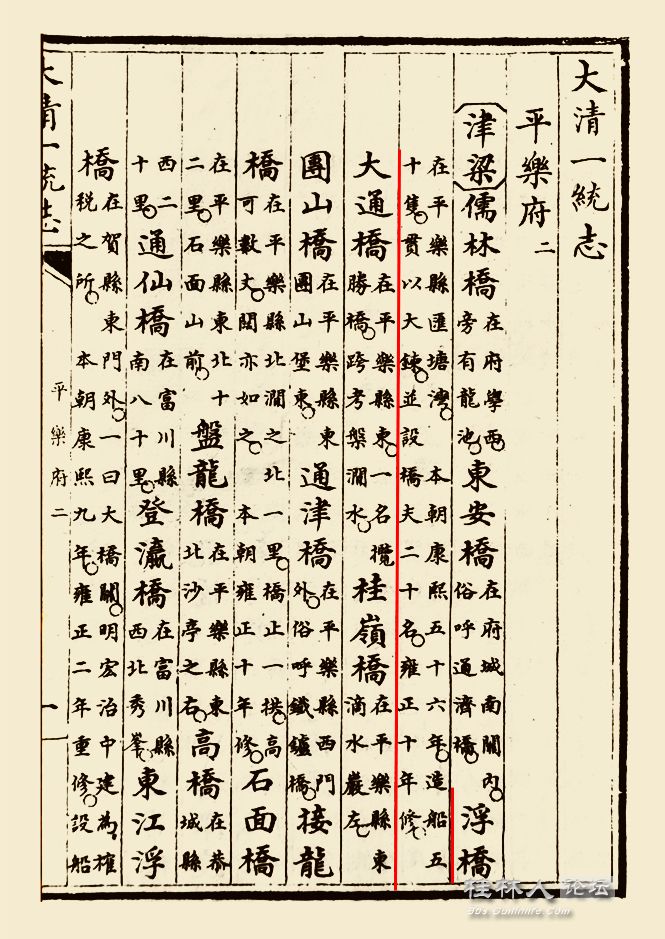 大清一統志
平樂府二
津梁儒林橋在府學西旁有龍池東安橋在府城南關內俗呼通濟橋浮橋
在平樂縣匯塘灣 本朝康熙五十六年造船五十隻貫以大鍊並設橋夫二十名雍正十年修
大通橋在平樂縣東一名攬勝橋跨考槃澗水桂嶺橋在平樂縣東滴水巖左
團山橋在平樂縣東團山堡東通津橋在平樂縣西門外俗呼鐵鑪橋接龍
橋在平樂縣北澗之北一里橋止一拱高可數丈闊亦如之 本朝雍正十年修石面橋
在平樂縣東北十二里石面山前盤龍橋在平樂縣東北沙亭之右高橋在恭城縣
西二十里通仙橋在富川縣南八十里登瀛橋在富川縣西北秀峯東江浮
橋在賀縣東門外一曰大橋關明宏治中建為榷稅之所 本朝康熙九年雍正二年重修設船
大清一統志 平樂府二 一
桂林人论坛
bbs.guilinlife.com